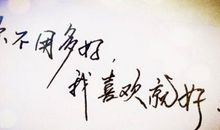 你不用多好，
我喜欢就好.